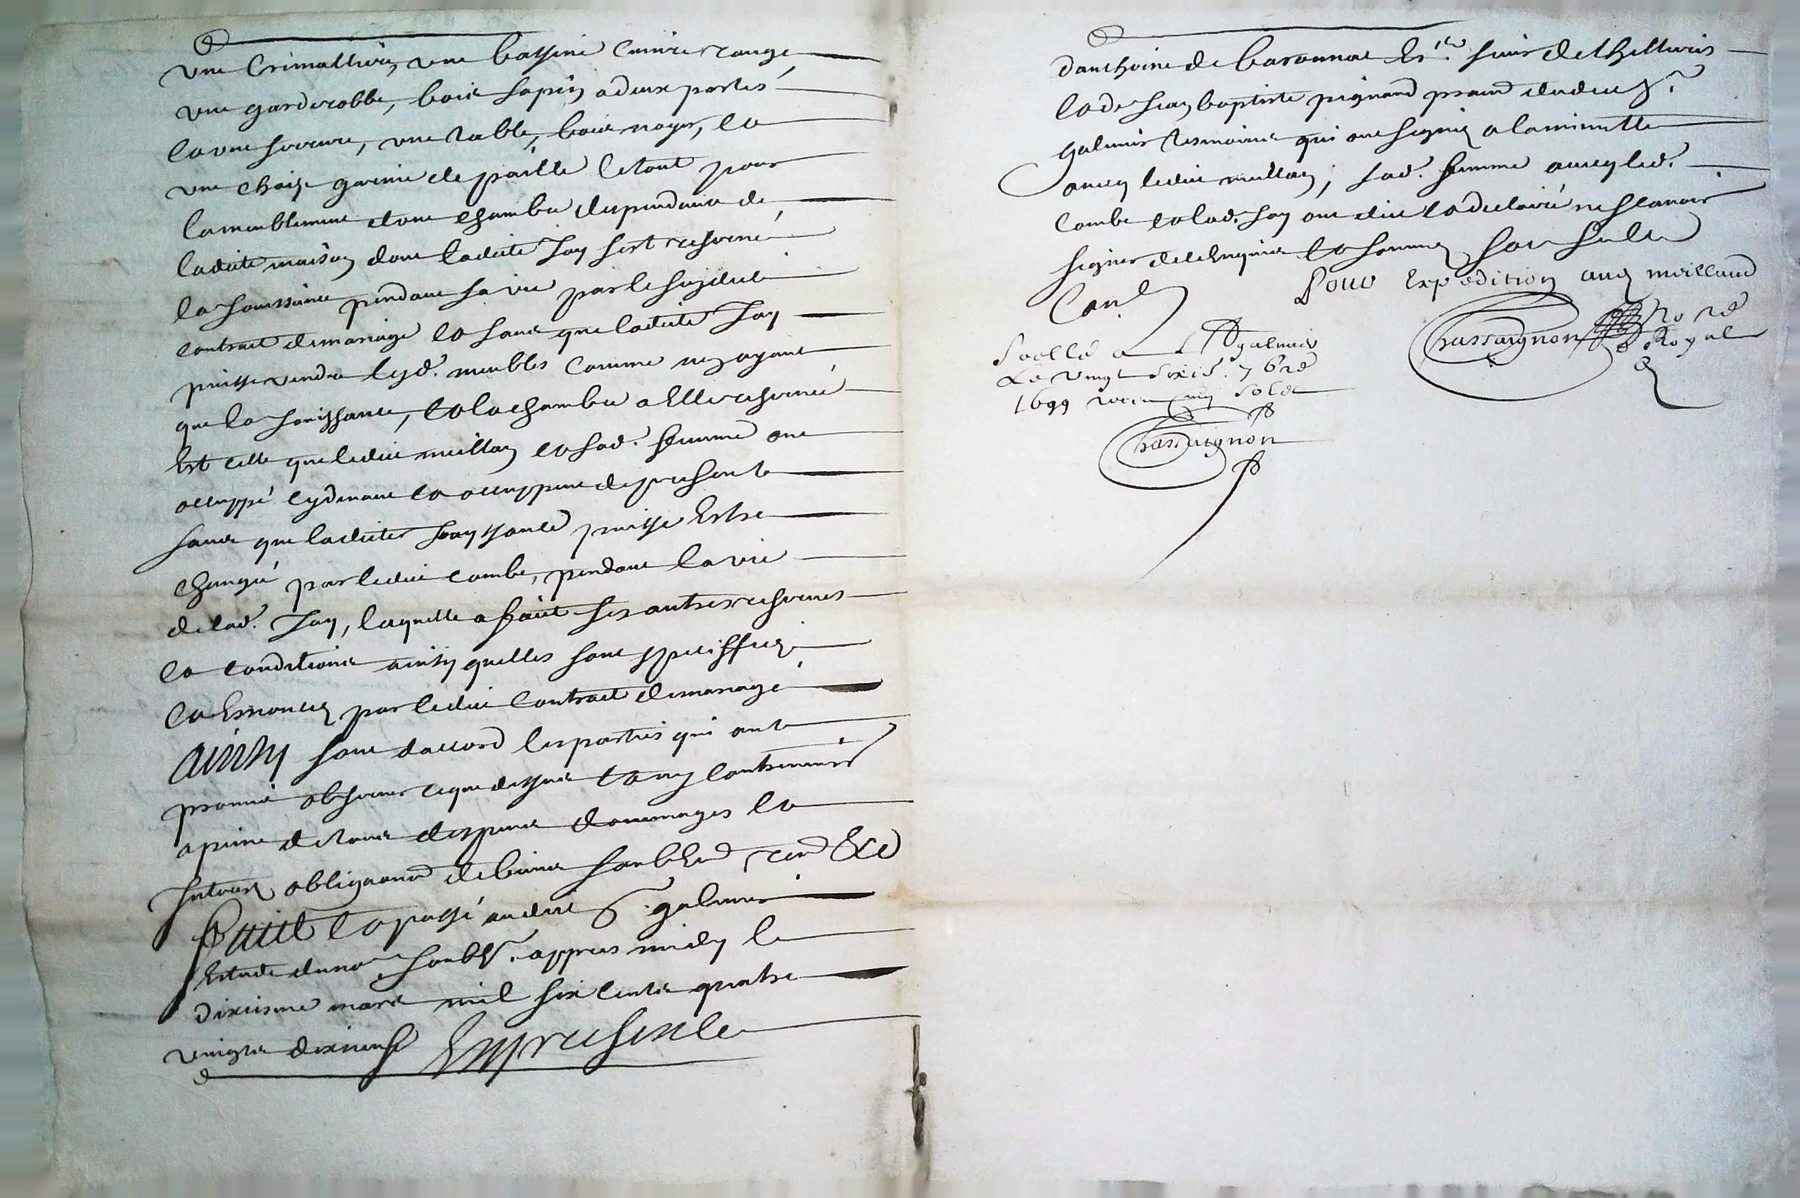 une Crimalliere, une bassine cuivre rouge
une garderobbe, bois sapin a deux portes
la une serrure, une table, bois noyer, et
une chaize garnie de paille le tout pour
lameublement dune chambre despendante de
ladite maison dont ladite Jay sest reservé
la jouissance pendant sa vie par le susdict
contract de mariage et sans que ladite Jay
puisse vendre lesd. meubles comme nayant
que la jouissance, et la chambre a Elle reservée
Est celle que ledict meillan et sad. femme ont
occuppé cydevant et occuppent de present
sans que ladite Jouyssance puisse Estre
changée par ledict combe, pendant la vie
de lad. Jay, laquelle a faict ses autres reserves
et conditions ainsy quelles sont speciffiez
et Enoncez par ledict contract de mariage
Ainsy sont daccord les parties qui ont
promis observer ce que dessus et ny contrevenir
a peine de tous despens dommages et
Interestz obligeant de biens soub En ren Ecc
Faict et passé audict St. galmier
Estude du nore. soubne. appres midy le
dixiesme mars mil six cents quatre
vingts dixneuf En presence
danthoine de baronnat sieur de
et de Jean baptiste pignard prand dudict St.
galmier tesmoins qui ont signez a la minutte
avecq ledict meillan, sad. femme avecq led.
combe et lad. Jay ont dict et declairé ne scavoir
signer de ce Enquis et sommez
Con
Pour Expedition aud meilland
Scellé a St galmier
Le vingt 7bre
1699 solz
Chassaignon nore
Royal
Chassaignon